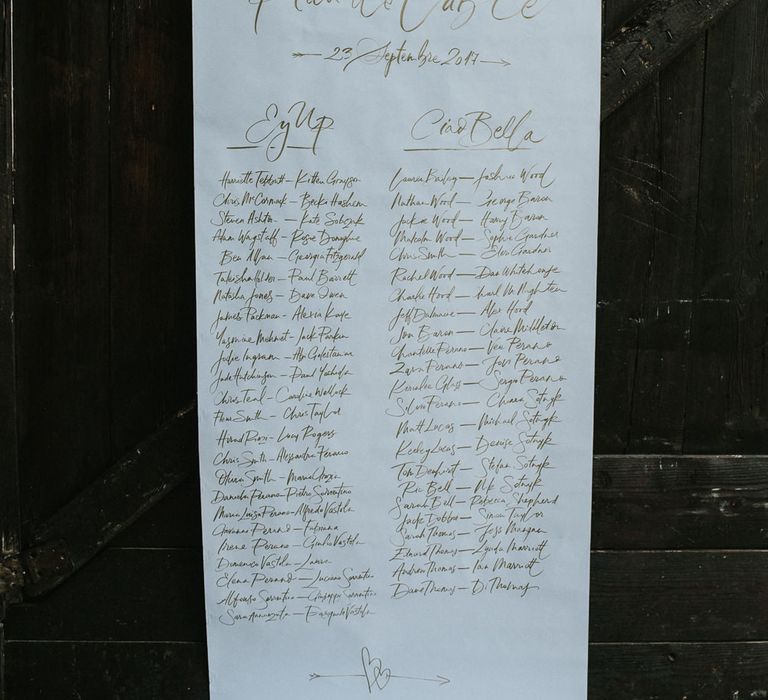 23 Septembre 2017
Ey Up
Harriette Tebbutt — Kitten Grayson
Chris McCormack — Becki Hashem
Steven Ashton — Kate Sobczyk
Adam Wagstaff — Rosie Donoghue
Ben Allan — Georgia Fitzgerald
Paul Barrett
Natasha Jones — Dave Owen
James Packman — Alexia Kaye
Yasmine Mehmet — Jack Parker
Julie Ingram
Jade Hutchinson — Paul
Chris Teal — Caroline Wallack
Fleur Smith — Chris Taylor
Lucy Rogers
Chris Smith — Alessandra Perano
Olivia Smith — Maria
Daniela Perano — Pietro Sorrentino
Maria Luiza Perano — Alfredo Vastola
Giovanni Perano
Irene Perano — Giulio Vastola
Domenico Vastola — Laura
Elena Perano — Luciano Sorrentino
Alfonso Sorrentino — Giuseppe Sorrentino
Sara Annunziata — Pasquale Vastola
Ciao Bella
Laurie Bailey — Joshua Wood
Nathan Wood — George Baron
Jackie Wood — Harry Baron
Malcolm Wood — Sophie Gardner
Chris Smith — Glen Gardner
Rachel Wood — Dan Whitehouse
Charlie Hood — Karl McNaghten
Jeff — Alex Hood
Jon Baron — Claire Middleton
Chantelle Perano — Ven Perano
Zara Perano — Jovi Perano
Kerralee Glass — Sergio Perano
Silvio Perano — Chiara Sotnyk
Matt Lucas — Michael Sotnyk
Keeley Lucas — Denise Sotnyk
Tom — Stefan Sotnyk
Bell — Nik Sotnyk
Sarah Bell — Rebecca Shepherd
Jack Dobbs — Simon Taylor
Sarah Thomas — Jess Mangan
Edward Thomas — Lynda Marriott
Andrew Thomas — Ian Marriott
Dave Thomas — Di Thomas